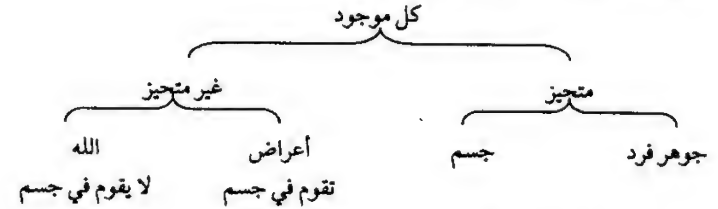 كل موجود
متحيز غير متحيز
جوهر فرد جسم أعراض الله
تقوم في جسم لا يقوم في جسم